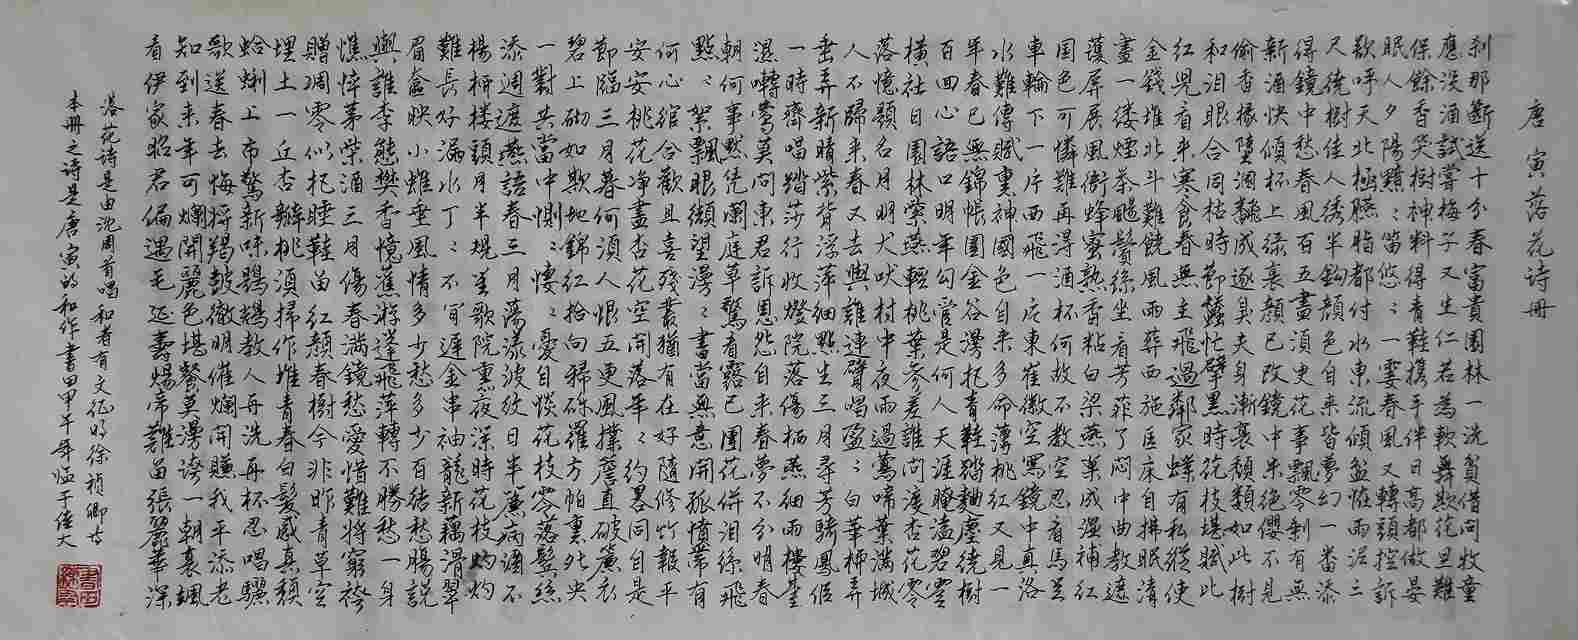 唐寅落花詩冊
剎那斷送十分春富貴園林一洗貧借問牧童
應沒酒試嘗梅子又生仁若為軟舞欺花旦難
保餘香笑樹神料得青鞋攜手伴日高都做晏
眠人夕陽黯黯笛悠悠一霎春風又轉頭控訴
欲呼天北極臙脂都付水東流傾盆怪雨泥三
尺繞樹佳人綉半鈎顏色自来皆夢幻一番添
得鏡中愁春風百五盡須臾花事飄零剩有無
新酒快傾杯上綠衰顏已改鏡中朱絕纓不見
偷香掾墮溷翻成逐臭夫身漸衰頹類如此樹
和淚眼合同枯時節蠶忙擘黑時花枝堪賦比
紅兒看来寒食春無主飛過鄰家蝶有私縱使
金錢堆北斗難饒風雨葬西施匡床自拂眠清
晝一縷煙茶颺鬢絲坐看芳菲了悶中曲教遮
護屏展風銜蜂蜜熟香粘白梁燕巢成濕補紅
国色可憐難再得酒杯何故不教空忍看馬足
車輪下一片西飛一片東崔徽空寫鏡中真洛
水難傳賦裏神國色自来多命薄桃紅又見一
年春已無錦帳圍金谷漫把青鞋踏麯塵繞樹
百回心語口明年勾管是何人天涯晻溘碧雲
橫社日園林紫燕輕桃葉參差誰問渡杏花零
落憶題名月明犬吠村中夜雨過鶯啼葉滿城
人不歸来春又去與誰連臂唱盈盈白華柳弄
垂弄新晴紫背浮萍細點生三月尋芳騎鳳侶
一時齊唱踏莎行收燈院落傷栖燕細雨樓臺
濕囀鶯莫問東君訴恩怨自来春夢不分明春
朝何事默凭闌庭草驚看露已團花併泪絲飛
點點絮飄眼纈望漫漫書當無意開孤憤帶有
何心綰合歡且喜殘叢猶有在好隨修竹報平
安安桃花凈盡杏花空開落年年約畧同自是
節臨三月暮何須人恨五更風撲簷直破簾衣
碧上砌如欺地錦紅拾向羅方帕裏
一對共當中惻惻悽悽憂自惔花枝零落鬢絲
添週遮燕語春三月蕩漾波紋日半簾病酒不
楊柳樓頭月半規笙歌院裏夜深時花枝灼灼
難長好漏水丁丁不肯遲金串袖籠新藕滑翠
眉奩映小蛾垂風情多少愁多少百結愁腸說
與誰李態樊香憶舊游蓬飛萍轉不勝愁一身
憔悴茅柴酒三月傷春滿鏡愁愛惜難將窮袴
贈凋零似把睡鞋留紅顏春樹今非昨青草空
埋土一丘杏瓣桃須掃作堆青春白髮感衰頹
蛤蜊上市驚新味鶗鴂教人再洗再杯忍唱驪
歌送春去悔將羯鼓徹明催爛開賺我平添老
知到来年可爛開麗色堪餐莫漫誇一朝衰颯
看伊家昭君偏遇毛延壽煬帝難留張麗華深
落花詩是由沈周首唱和者有文征明徐禎卿等
本冊之詩是唐寅的和作書甲午年